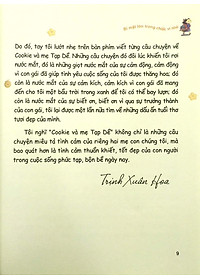 Do đó, tay tôi lướt nhẹ trên bàn phím viết từng câu chuyện về
Cookie và mẹ Tạp Dề. Những câu chuyện đó đôi lúc khiến tôi rơi
nước mắt, đó là những giọt nước mắt của sự cảm động, cảm động
vì con gái đã giúp tình yêu cuộc sống của tôi được thăng hoa; đó
còn là nước mắt của sự cảm kích, cảm kích vì con gái đã mang
đến cho tôi một bầu trời trong xanh để tôi có thể bay lượn; đó
còn là nước mắt của sự biết ơn, biết ơn vì qua sự trưởng thành
của con gái, tôi lại được một lần nữa tìm về những dấu ấn tuổi thơ
tươi đẹp của mình.
Tôi nghĩ "Cookie và mẹ Tạp Dề" không chỉ là những câu
chuyện miêu tả tình cảm của riêng hai mẹ con chúng tôi, mà
bao quát hơn là tình cảm thuần khiết, tốt đẹp của con người
trong cuộc sống phức tạp, bộn bề ngày nay.
Trịnh Xuân Hoa
9